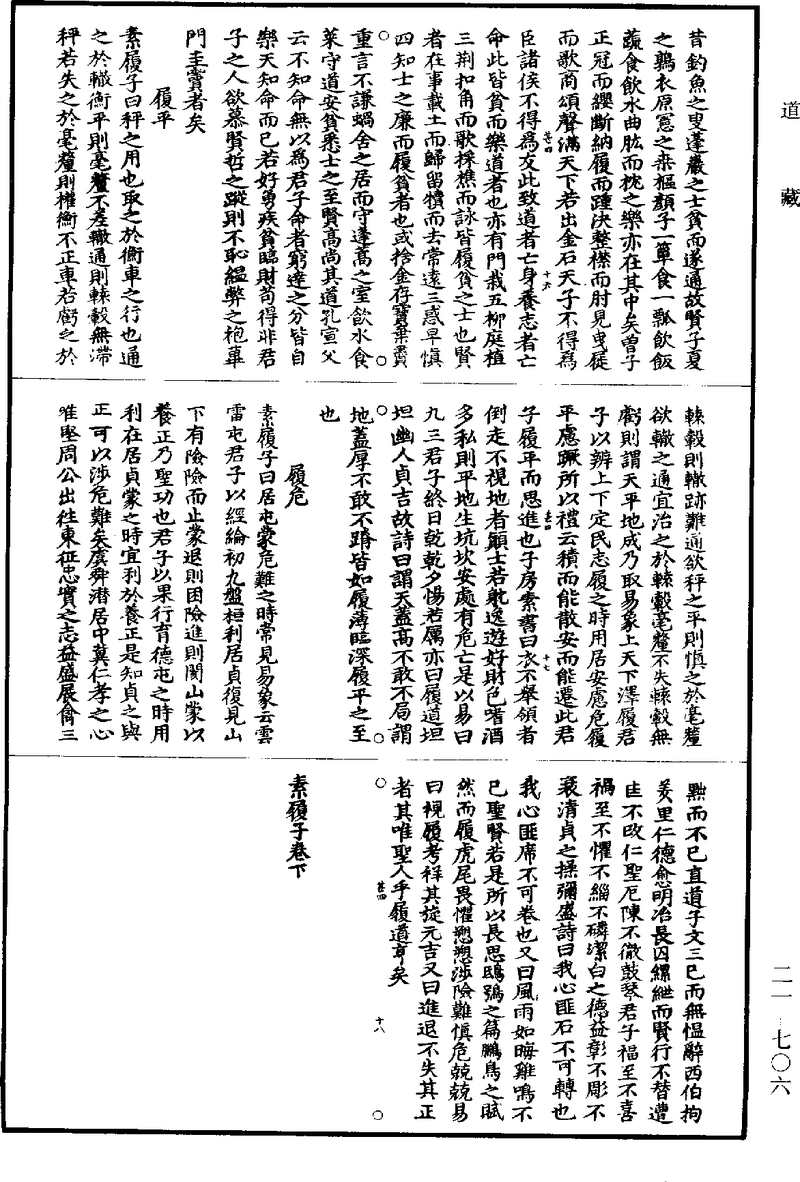 道藏
昔釣魚之叟蓬巖之士貧而遂通故賢子夏
之鶉衣原憲之桑樞顏子一簞食一瓢飲飯
蔬食飲水曲肱而枕之樂亦在其中矣曾子
正冠而纓斷納履而踵決整襟而肘見曳屣
而歌商頌聲滿天下若出金石天子不得爲
臣諸侯不得爲友此致道者亡身養志者亡
命此皆貧而樂道者也亦有門栽五柳庭植
三荆扣角而歌採樵而詠皆履貧之士也賢
者在事載土而歸留犢而去常遠三惑早慎
四知士之廉而履貧者也或捨金存寶棄貴
重言不謙蝸舍之居而守蓬蒿之室飲水食
菜守道安貧悉士之至賢高尚其道孔宣父
云不知命無以爲君子命者窮達之分皆自
樂天知命而已若好勇疾貧臨財苟得非君
子之人欲慕賢哲之蹤則不恥緼弊之袍蓽
門圭竇者矣
履平
素履子曰秤之用也取之於衡車之行也通
之於轍衡平則毫釐不差轍通則轅轂無滯
秤若失之於毫釐則權衡不正車若虧之於
轅轂則轍跡難通欲秤之平則慎之於毫釐
欲轍之通宜治之於轅轂毫釐不失轅轂無
虧則謂天平地成乃取易象上天下澤履君
子以辨上下定民志履之時用居安慮危履
平慮蹶所以禮云積而能散安而能遷此君
子履平而思進也子房素書曰衣不舉領者
倒走不視地者顛士若躭逸遊好財色嗜酒
多私則平地生坑坎安處有危亡是以易曰
九三君子終日乾乾夕惕若厲亦曰履道坦
坦幽人貞吉故詩曰謂天蓋高不敢不局謂
地蓋厚不敢不蹐皆如履薄臨深履平之至
也
履危
素履子曰居屯蒙危難之時常見易象云雲
雷屯君子以經綸初九盤桓利居貞復見山
下有險險而止蒙退則困險進則閡山蒙以
養正乃聖功也君子以果行育德屯之時用
利在居貞蒙之時宜利於養正是知貞之與
正可以涉危難矣虞舜潜居中冀仁孝之心
唯堅周公出往東征忠實之志益盛展禽三
黜而不已直道子文三已而無愠辭西伯拘
羑里仁德愈明冶長囚縲紲而賢行不替遭
匡不改仁聖厄陳不徹鼓琴君子福至不喜
禍至不懼不緇不磷潔白之德益彰不彫不
衰清貞之操彌盛詩曰我心匪石不可轉也
我心匪席不可卷也又曰風雨如晦雞鳴不
已聖賢若是所以長思鴟鴞之篇鵬鳥之賦
然而履虎尾畏懼愬愬涉險難慎危兢兢易
曰視履考祥其旋元吉又曰進退不失其正
者其唯聖人乎履道亨矣
素履子卷下
十六
十七
十八
二一七〇六